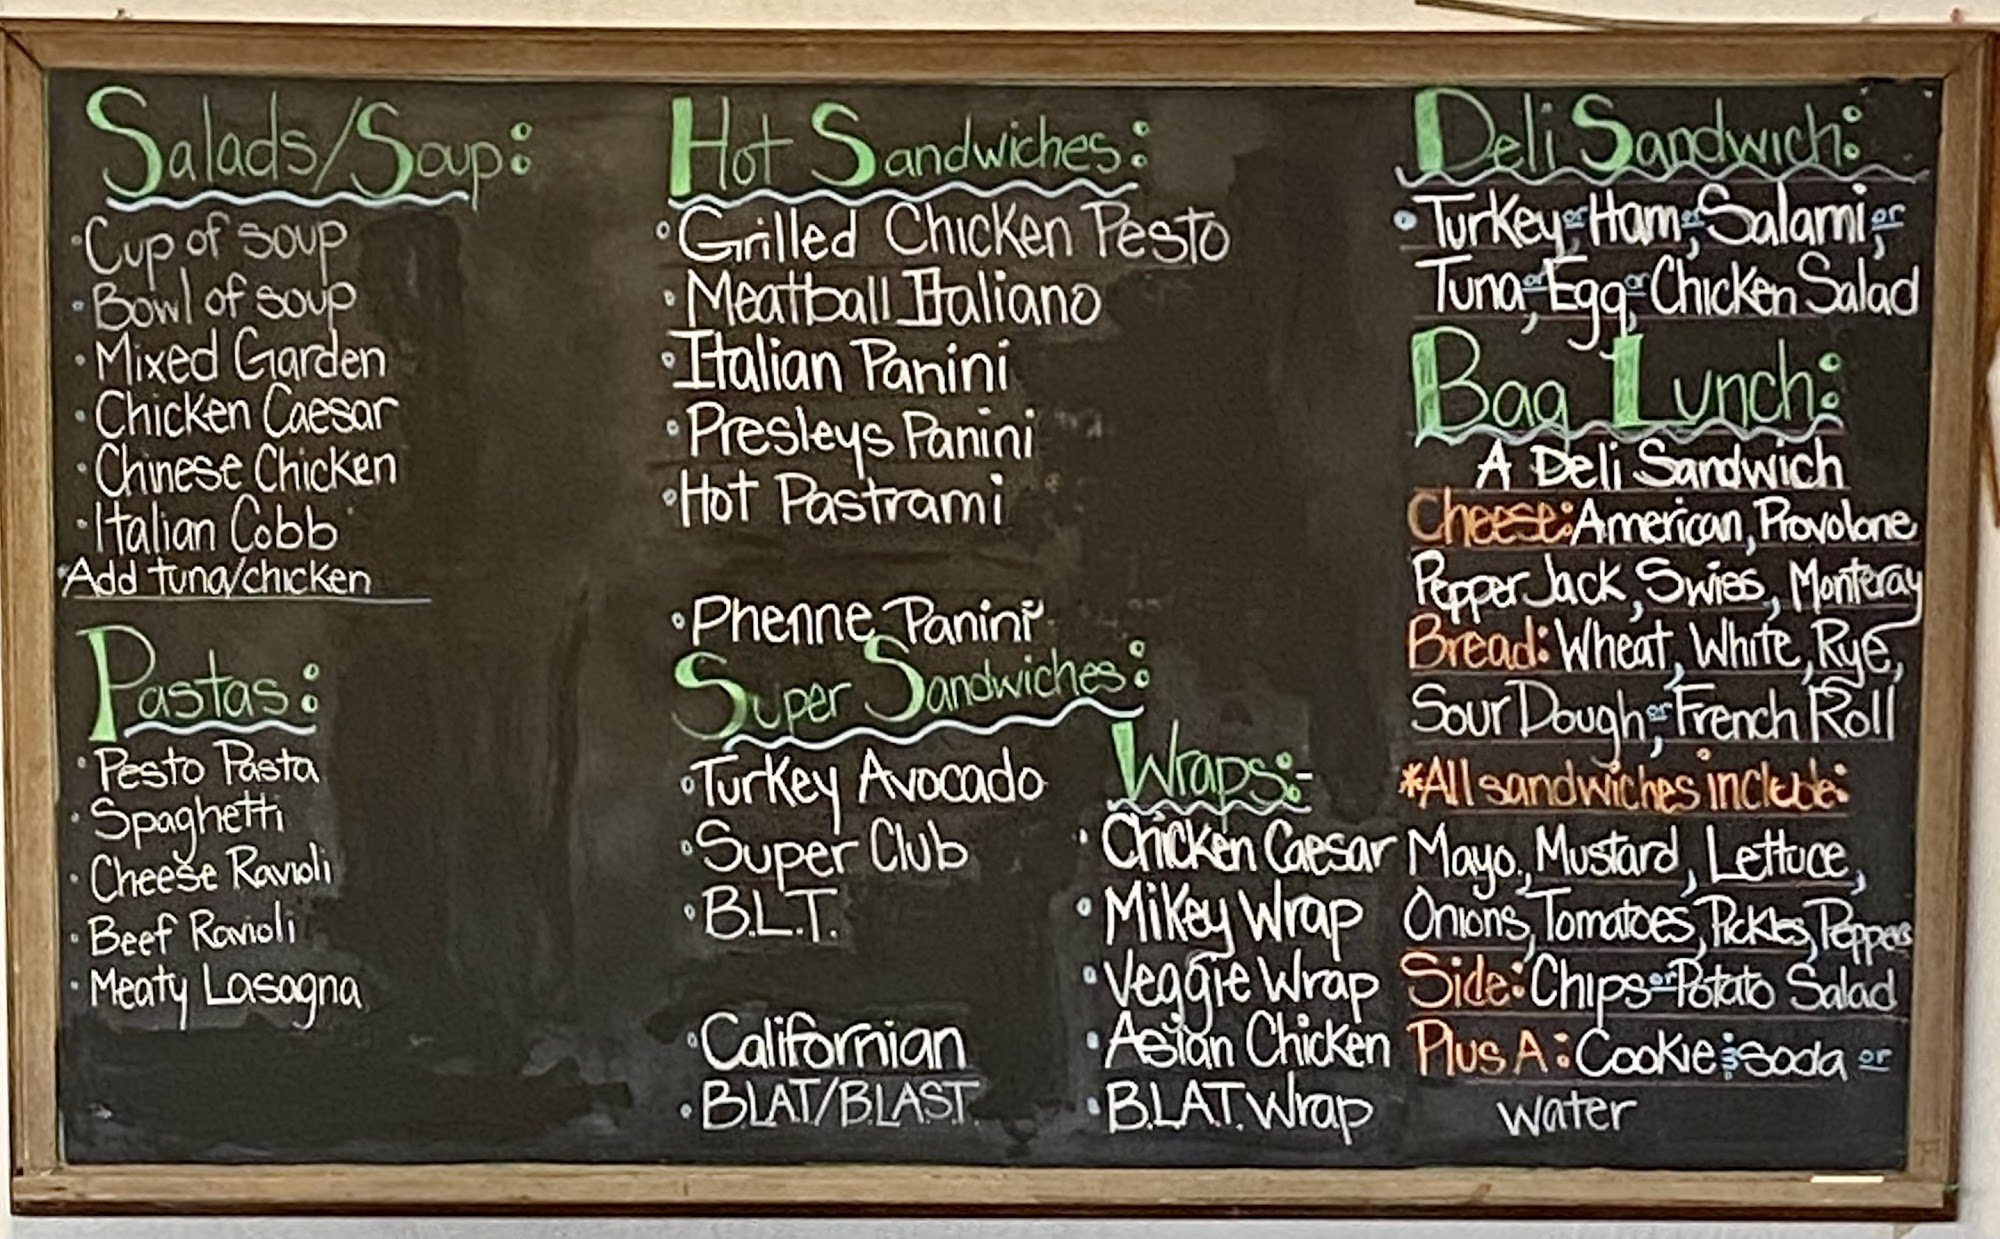 Salads/Soup:
·Cup of soup
·Bowl of soup
·Mixed Garden
·Chicken Caesar
·Chinese Chicken
·Italian Cobb
*Add tuna/chicken
Pastas:
·Pesto Pasta
·Spaghetti
·Cheese Ravioli
·Beef Ravioli
·Meaty Lasagna
Hot Sandwiches:
·Grilled Chicken Pesto
·Meatball Italiano
·Italian Panini
·Presleys Panini
·Hot Pastrami
·Phenne Panini
Super Sandwiches:
·Turkey Avocado
·Super Club
·B.L.T.
·Californian
·BLAT/BLAST
Wraps:-
·Chicken Caesar
·Mikey Wrap
·Veggie Wrap
·Asian Chicken
·B.L.A.T. Wrap
Deli Sandwich:
·Turkey, or Ham, or Salami, or
Tuna, or Egg, or Chicken Salad
Bag Lunch:
A Deli Sandwich
Cheese: American, Provolone
Pepper Jack, Swiss, Monteray
Bread: Wheat, White, Rye,
Sour Dough, or French Roll
*All sandwiches include:
Mayo., Mustard, Lettuce,
Onions, Tomatoes, Pickles, Peppers
Side: Chips or Potato Salad
Plus A: Cookie & soda or
water